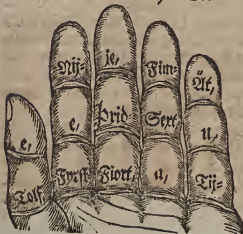 Nij= je, Fim= Át,
e, e, Þrid= Sext u,
Tolf, Fyrst Fiort, u, Tij=